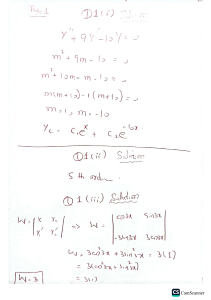 Page 1
Q1(i) Solution
y'' + 9y' - 10y = 0
m² + 9m - 10 = 0
m² + 10m - m - 10 = 0
m(m+10) - 1(m+10) = 0
m = 1, m = -10
Yc = C₁eˣ + C₂e⁻¹⁰ˣ
Q1(ii) Solution
5th order.
Q1(iii) Solution
W = | y₁ y₂ | ⇒ W = | cos3x sin3x |
| y₁' y₂' | | -3sin3x 3cos3x |
W = 3cos²3x + 3sin²3x = 3(1)
= 3(cos²3x + sin²3x)
W = 3 = 3(1)
CS CamScanner